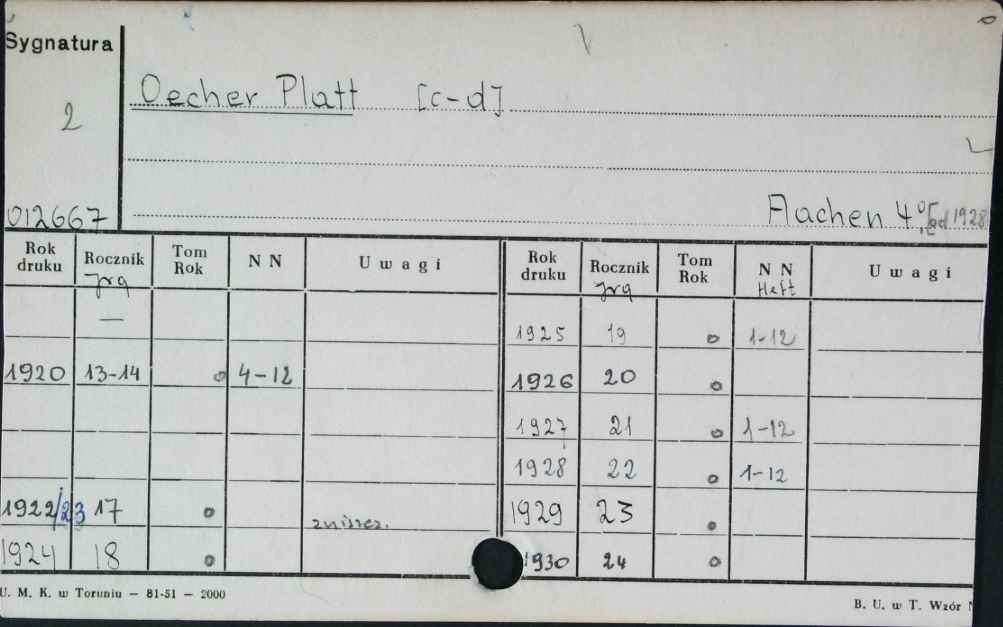 Sygnatura
2
012667
Oecher Platt [c-d]
Aachen 4° [ed 1928
Rok druku Rocznik Jrg Tom Rok N N Uwagi
—
1920 13-14 o 4-12
1922/23 17 o zniszcz.
1924 18 o
Rok druku Rocznik Jrg Tom Rok N N Heft Uwagi
1925 19 o 1-12
1926 20 o
1927 21 o 1-12
1928 22 o 1-12
1929 23 o
1930 24 o
U. M. K. w Toruniu — 81-51 — 2000
B. U. w T. Wzór